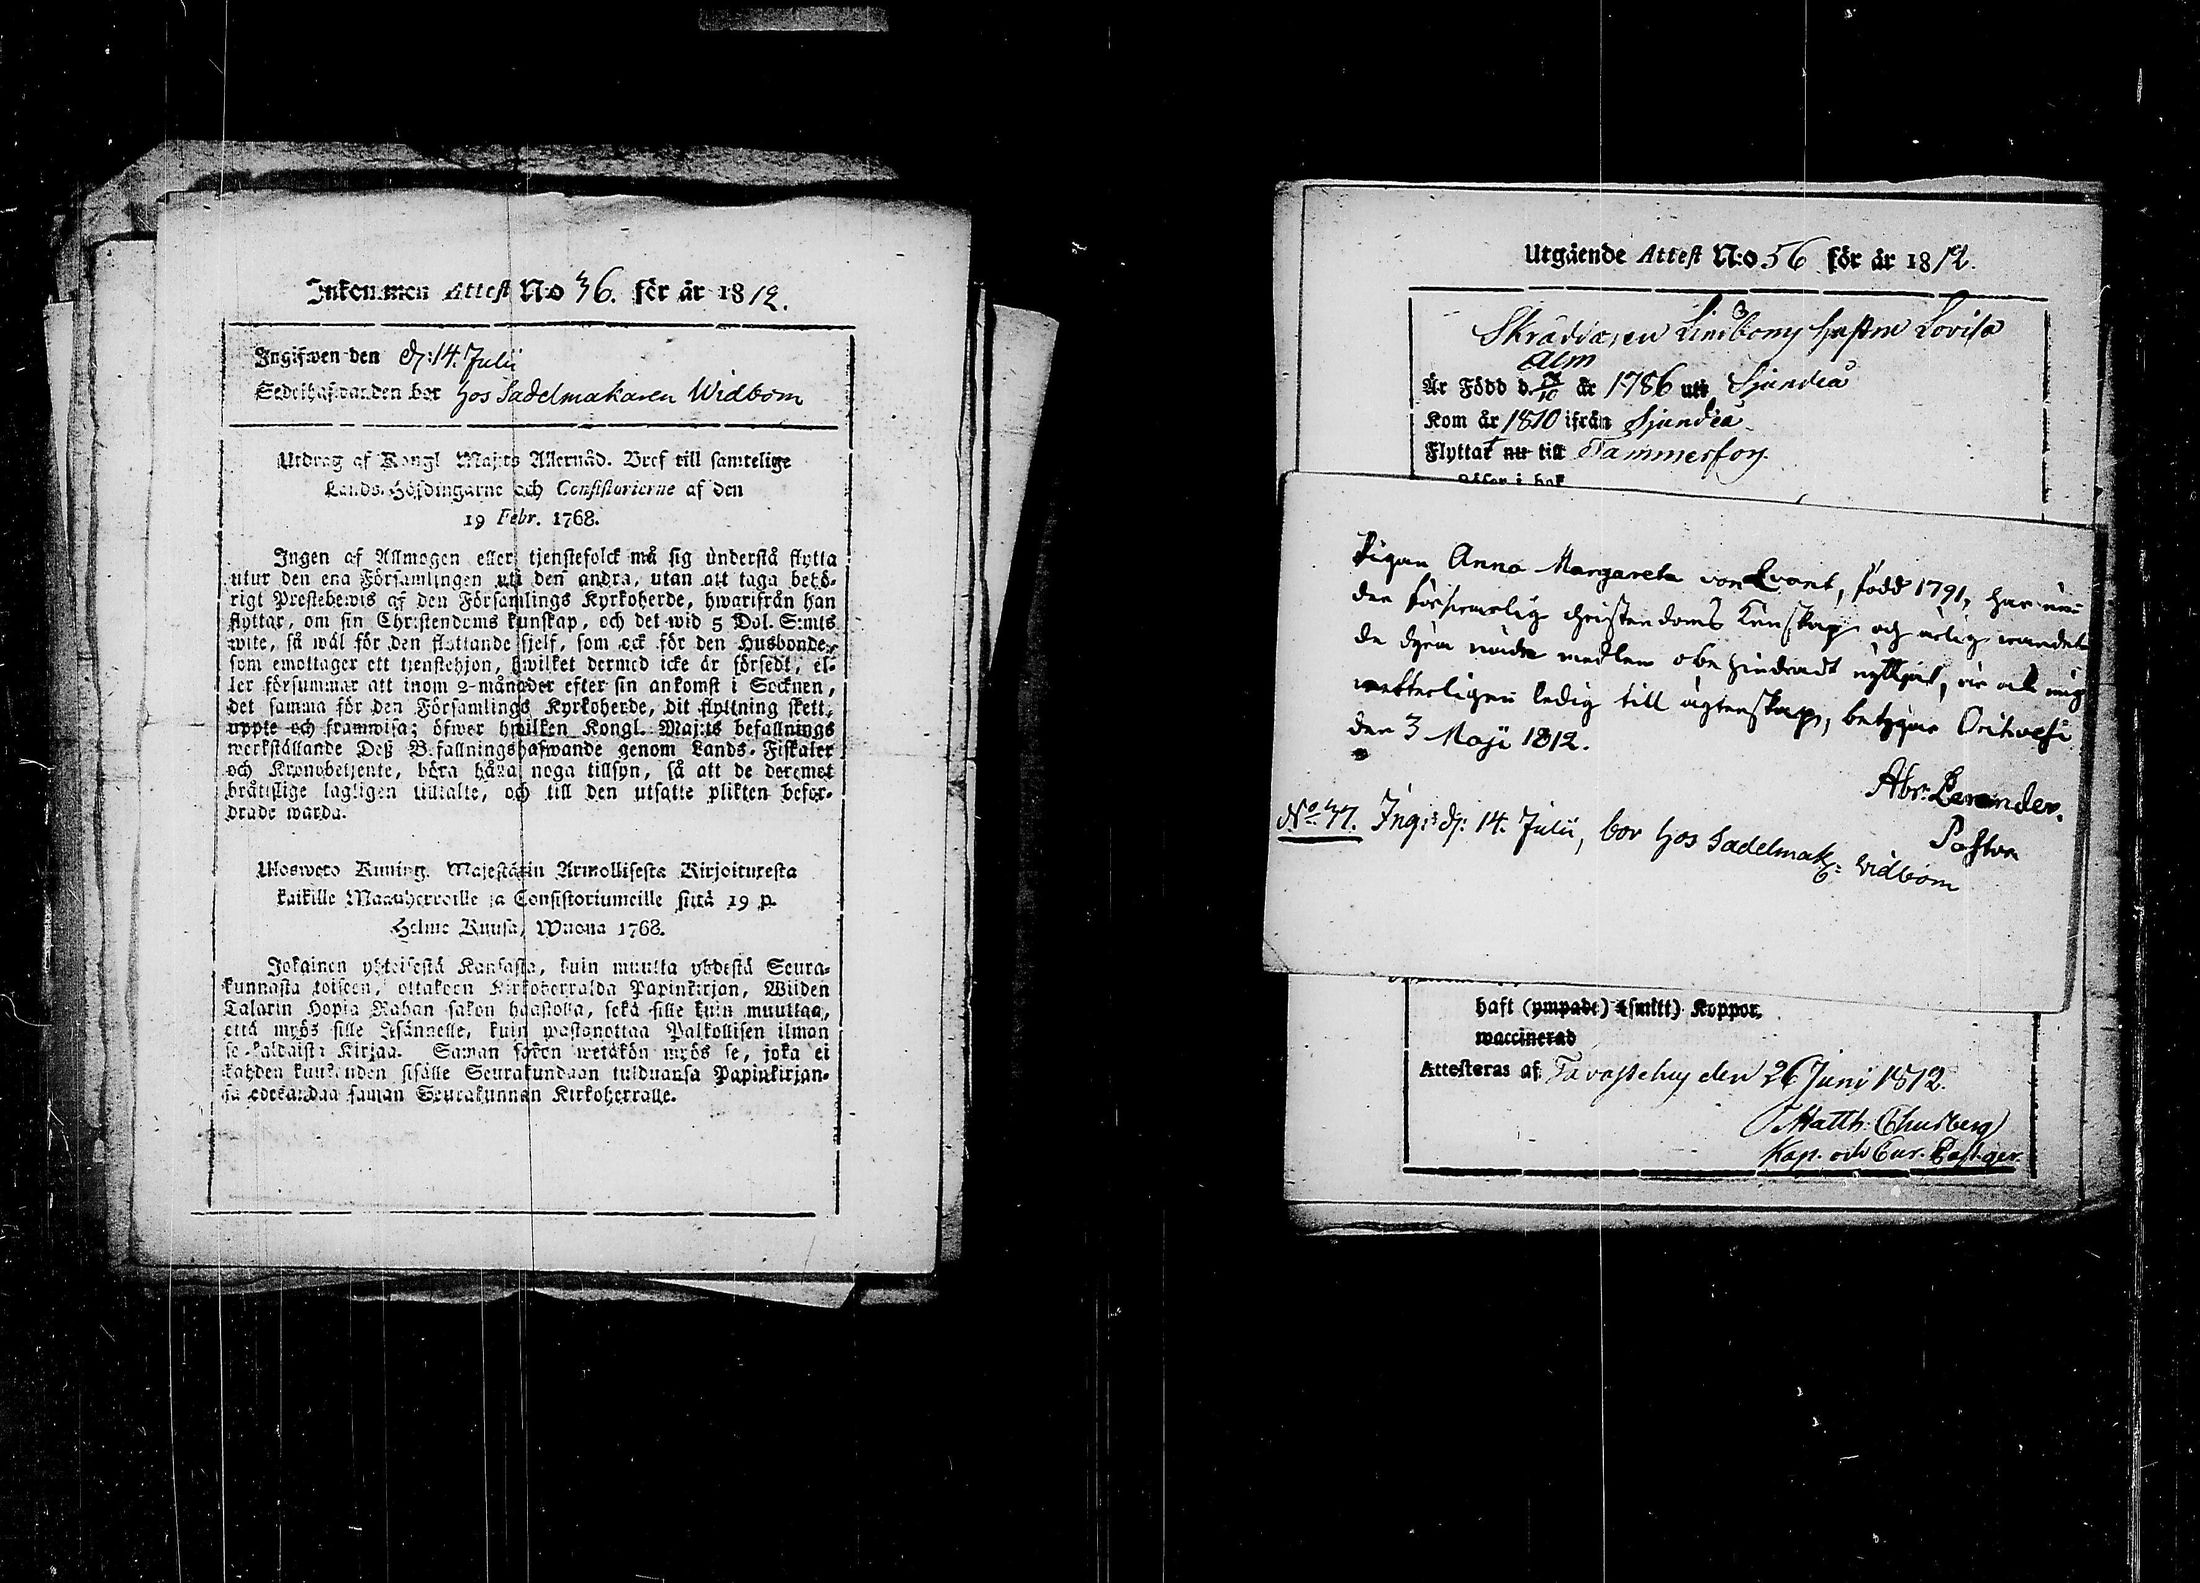 Inkommen Attest N:o 36. för år 1812.
Ingifwen den d: 14. Julii
Sedelhafwanden bor hos Sadelmakaren Widbom
Utdrag af Kongl Maj:ts Allernåd. Bref till samtelige
Lands-Höfdingarne och Consistorierne af den
19 Febr. 1768.
Ingen af Allmogen eller tjenstefolck må sig understå flytta
utur den ena Församlingen uti den andra, utan att taga behö-
rigt Prestebewis af den Församlings Kyrkoherde, hwarifrån han
flyttar, om sin Christendoms kunskap, och det wid 5 Dol. S:mts
wite, så wäl för den flyttande sjelf, som ock för den Husbonde,
som emottager ett tjenstehjon, hwilket dermed icke är försedt, el-
ler försummar att inom 2-månader efter sin ankomst i Socknen,
det samma för den Församlings Kyrkoherde, dit flyttning skett,
uppte och framwisa; öfwer hwilken Kongl. Maj:ts befallnings
werkställande Deß Befallningshafwande genom Lands-Fiskaler
och Kronobetjente, böra hålla noga tillsyn, så att de deremot
brättslige lagligen tilltalte, och till den utsatte plikten befor-
drade warda.
Ulosweto Kuning. Majestätin Armollisesta Kirjoituxesta
kaikille Maanherroille ja Consistoriumeille siitä 19 p.
Helme Kuusa, Wuona 1768.
Jokainen yhteisestä Kansasta, kuin muutta yhdestä Seura-
kunnasta toiseen, ottakoon Kirkoherralda Papinkirjan, Wiiden
Talarin Hopia Rahan sakon haastolla, sekä sille kuin muuttaa,
että myös sille Isännelle, kuin wastanottaa Palkollisen ilman
se kaldaista Kirjaa. Saman sakon wetäkön myös se, joka ei
kahden kuukauden sisälle Seurakundaan tulduansa Papinkirjan-
sa edeskandaa saman Seurakunnan Kirkoherralle.
Utgående Attest N:o 56 för år 1812.
Skräddaren Lindboms hustru Lovisa
Alm
Är Född d. 10 år 1786 uti Sjundeå
Kom år 1810 ifrån Sjundeå
Flyttat nu till Tammerfors
Läser i bok
Pigan Anna Margareta von Qvant, född 1791, har
den försvarlig christendoms Kunskap och ärlig wandel
de dyra nåde medlen obehindradt nyttjat, är ock mig
wetterligen ledig till ägtenskap, betygar Orihvesi
den 3 Maji 1812.
Abr: Lerander.
Pastor
No 37. Ing: d: 14. Julii, bor hos Sadelmak: Widbom
haft (ympade) (smitt) Koppor,
waccinerad
Attesteras af Tavastehus den 26 Junij 1812.
Matth: Thusberg
Kap. och Cur. Past-ger.